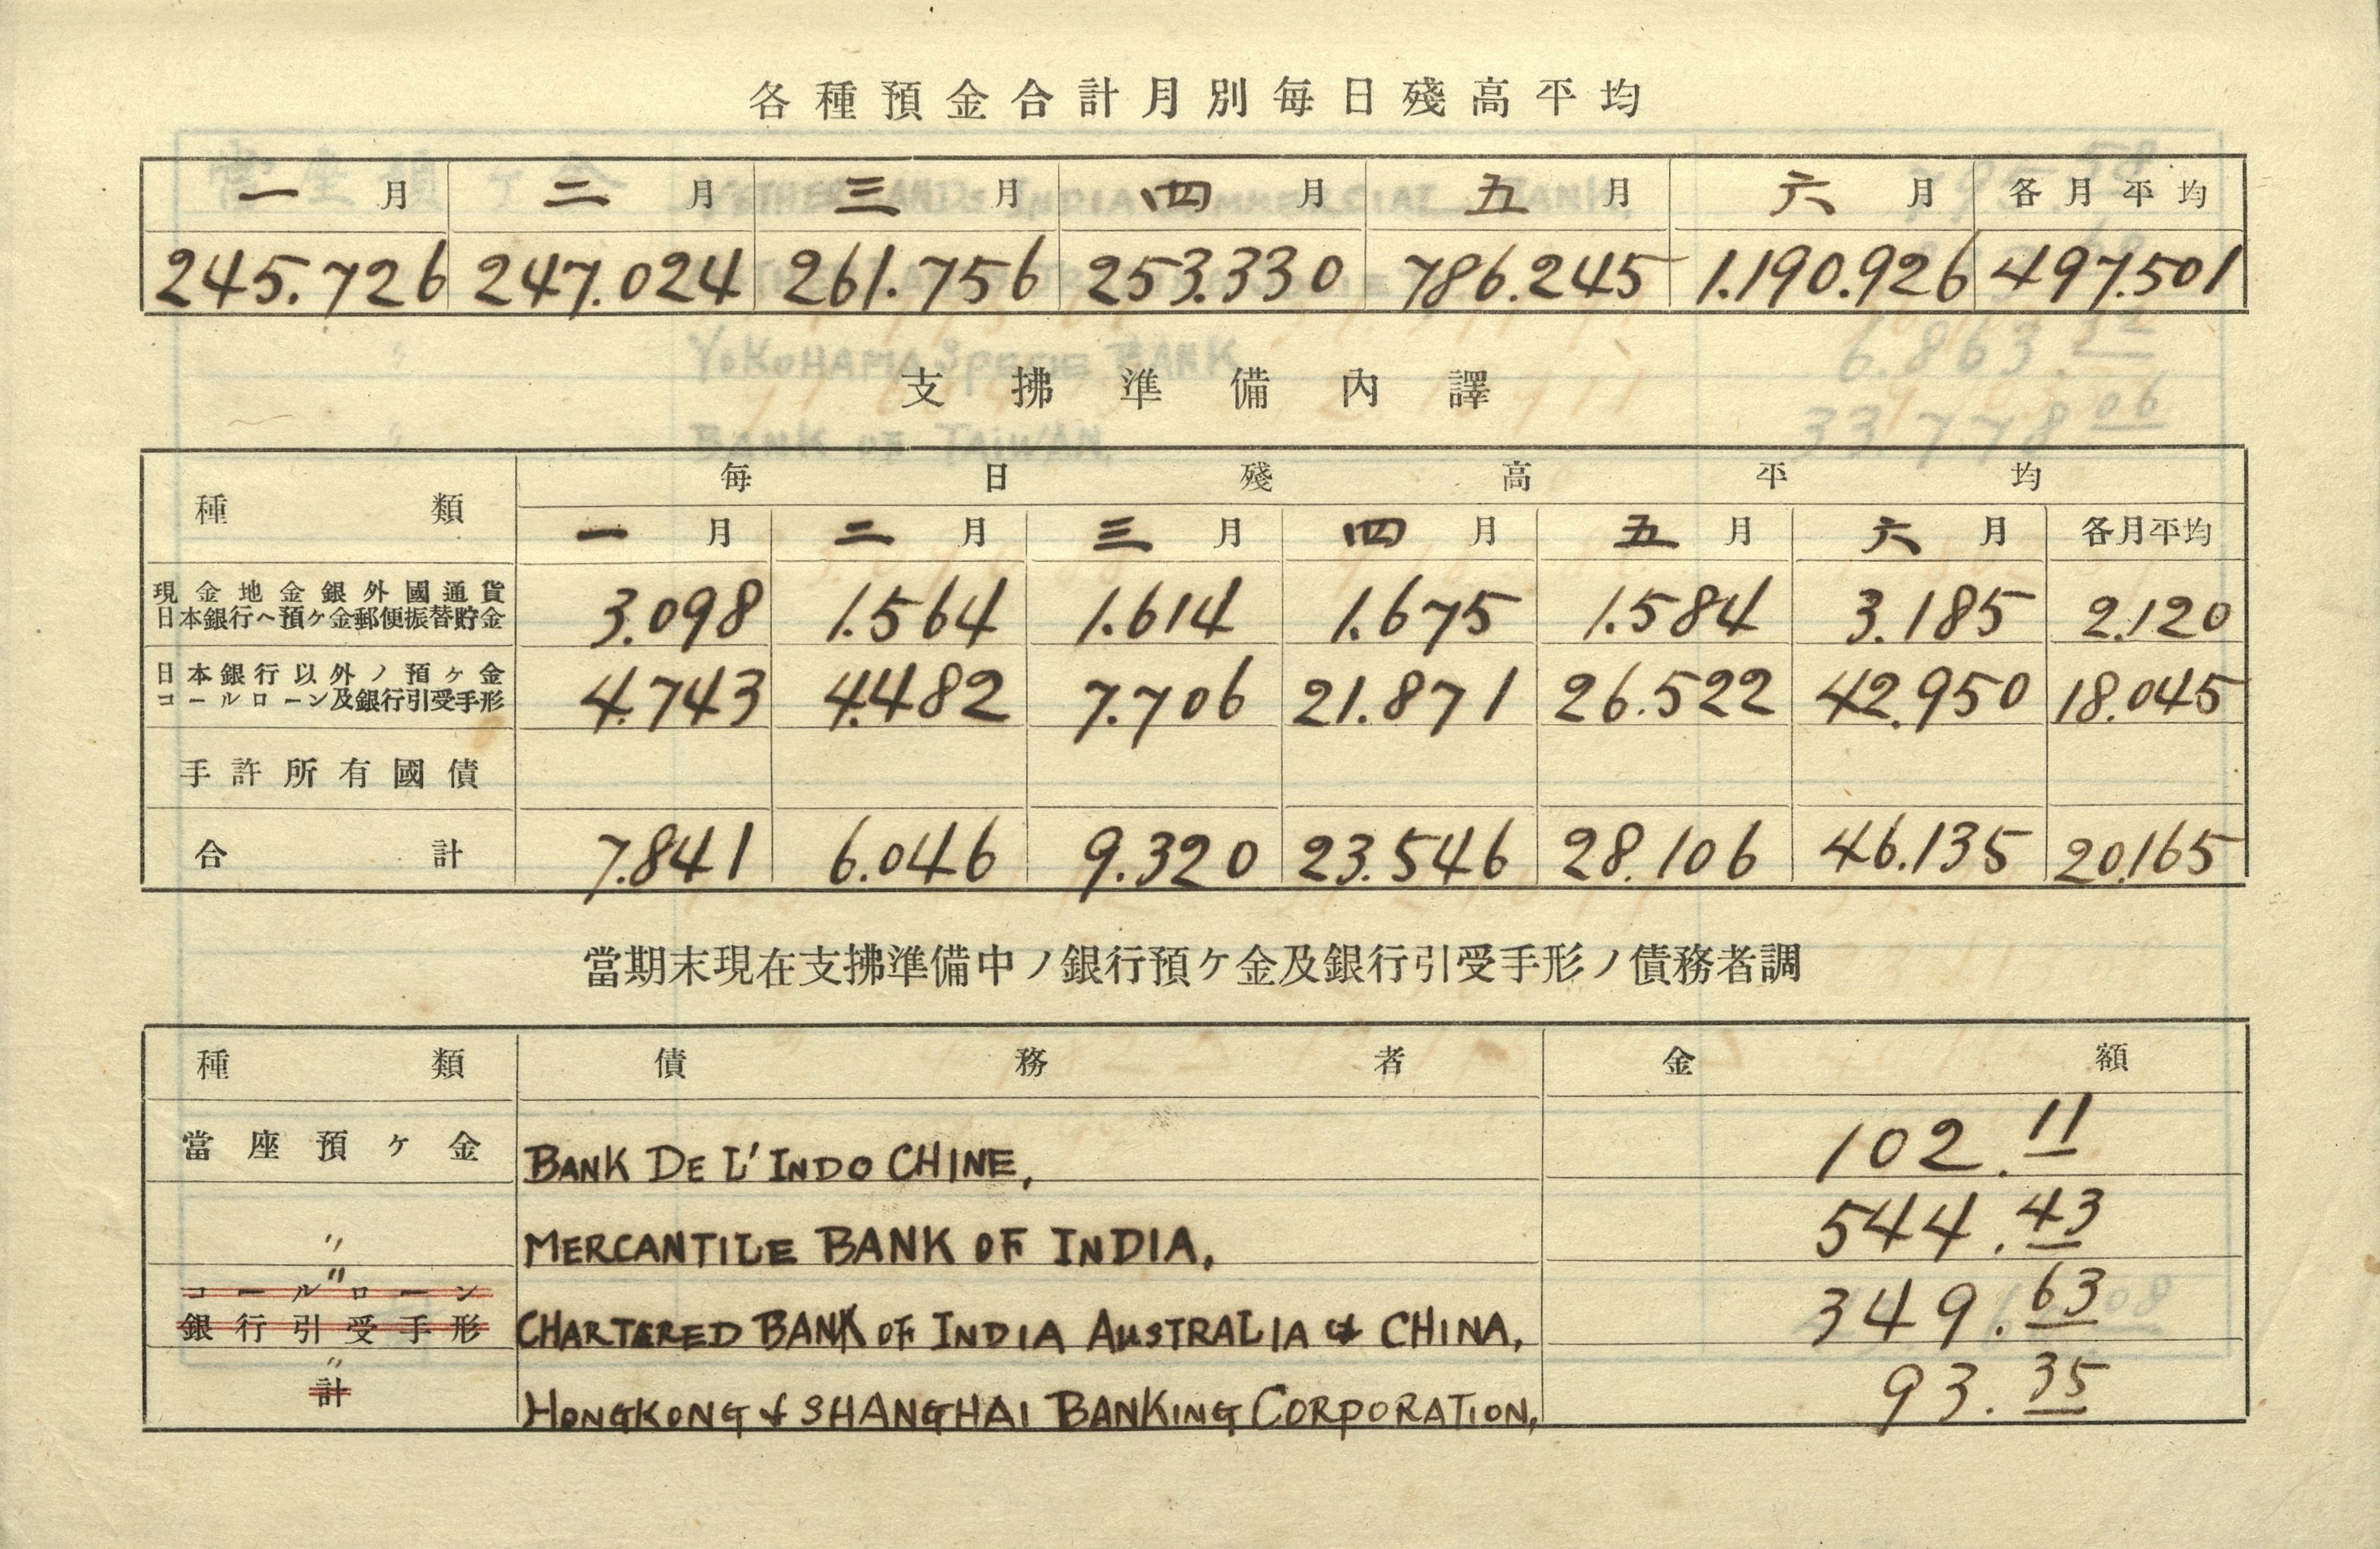 各種預金合計月別每日殘高平均
一月 二月 三月 四月 五月 六月 各月平均
245.726 247.024 261.756 253.330 786.245 1.190.926 497.501
支拂準備內譯
種類 每日殘高平均
一月 二月 三月 四月 五月 六月 各月平均
現金地金銀外國通貨
日本銀行ヘ預ケ金郵便振替貯金 3.098 1.564 1.614 1.675 1.584 3.185 2.120
日本銀行以外ノ預ケ金
コールローン及銀行引受手形 4.743 4.482 7.706 21.871 26.522 42.950 18.045
手許所有國債
合計 7.841 6.046 9.320 23.546 28.106 46.135 20.165
當期末現在支拂準備中ノ銀行預ケ金及銀行引受手形ノ債務者調
種類 債務者 金額
當座預ケ金 BANK DE L'INDO CHINE, 102.11
〃 MERCANTILE BANK OF INDIA, 544.43
〃
コールローン
銀行引受手形 CHARTERED BANK OF INDIA AUSTRALIA & CHINA, 349.63
〃
計 HONGKONG & SHANGHAI BANKING CORPORATION, 93.35